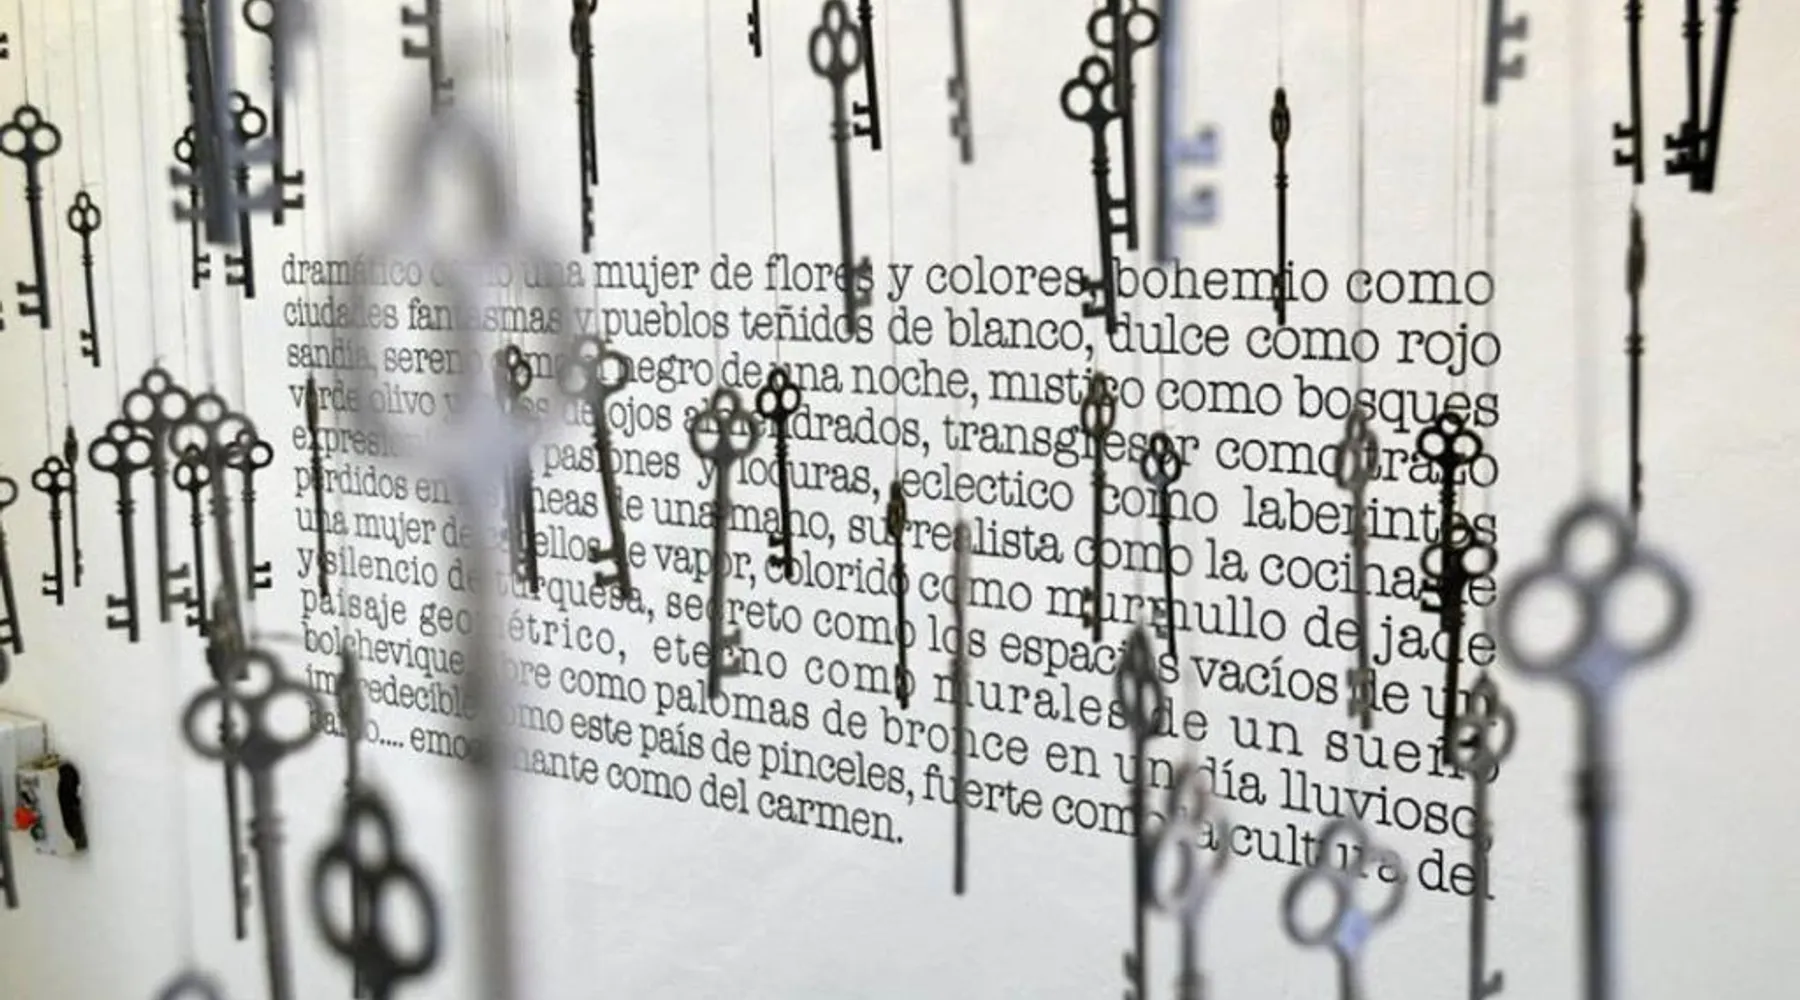 dramático como una mujer de flores y colores, bohemio como
ciudades fantasmas y pueblos teñidos de blanco, dulce como rojo
sandía, sereno como negro de una noche, mistico como bosques
verde olivo y de ojos almendrados, transgresor como trazo
pasiones y locuras, eclectico como laberintos
perdidos en líneas de una mano, surrealista como la cocina de
una mujer de cabellos de vapor, colorido como murmullo de jade
y silencio de turquesa, secreto como los espacios vacíos de un
paisaje geométrico, eterno como murales de un sueño
bolchevique, como palomas de bronce en un día lluvioso,
impredecible como este país de pinceles, fuerte como la cultura del
barrio.... emocionante como del carmen.